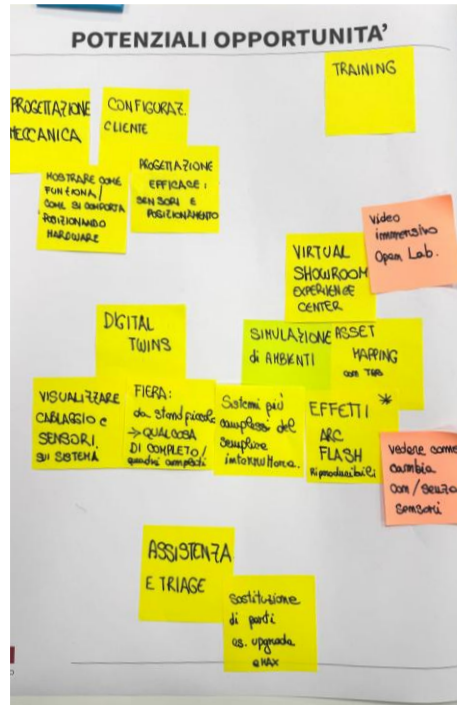 POTENZIALI OPPORTUNITA'
TRAINING
PROGETTAZIONE
MECCANICA
CONFIGURAZ.
CLIENTE
MOSTRARE COME
FUNZIONA /
COME SI COMPORTA
POSIZIONANDO
HARDWARE
PROGETTAZIONE
EFFICACE:
SENSORI E
POSIZIONAMENTO
Video
immersivo
Open Lab.
VIRTUAL
SHOWROOM
EXPERIENCE
CENTER
DIGITAL
TWINS
SIMULAZIONE
di AMBIENTI
ASSET
MAPPING
con
VISUALIZZARE
CABLAGGIO e
SENSORI
SU SISTEMA
FIERA:
da stand piccolo
→ QUALCOSA
DI COMPLETO/
quadri completi
Sistemi più
complessi del
semplice
interruttore.
EFFETTI *
ARC
FLASH
Riproducibili
vedere come
cambia
con/senza
sensori
ASSISTENZA
E TRIAGE
Sostituzione
di parti
es. upgrade
eMAX